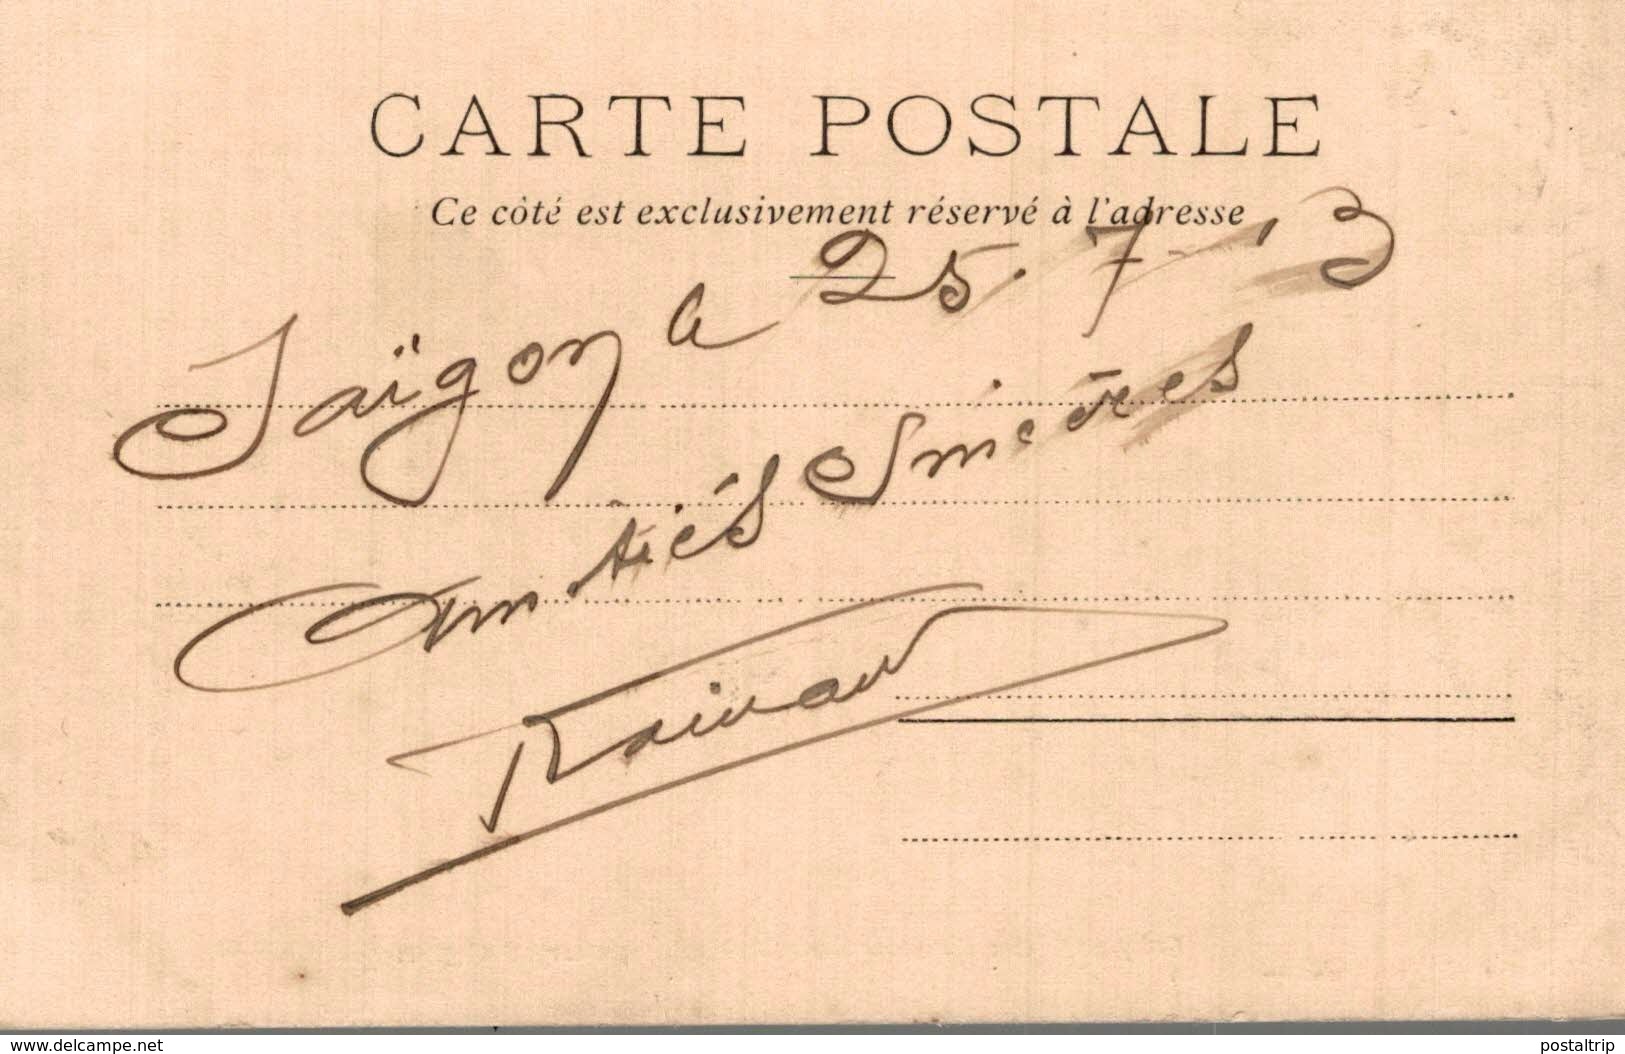 CARTE POSTALE
Ce côté est exclusivement réservé à l'adresse
Saïgon le 25.7-13
Amitiés Sincères
www.delcampe.net
postaltrip